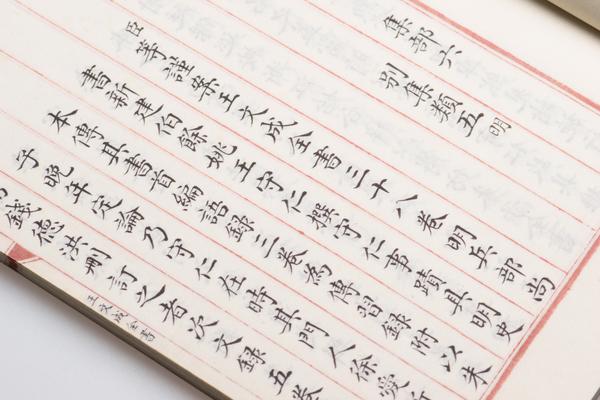 集部六
別集類五明
臣等謹案王文成全書三十八卷明兵部尚
書新建伯餘姚王守仁撰守仁事蹟具明史
本傳其書首編語録三卷為傳習録附以朱
子晚年定論乃守仁在時其門人徐愛
錢德洪刪訂之者次文録五卷
王文成全書